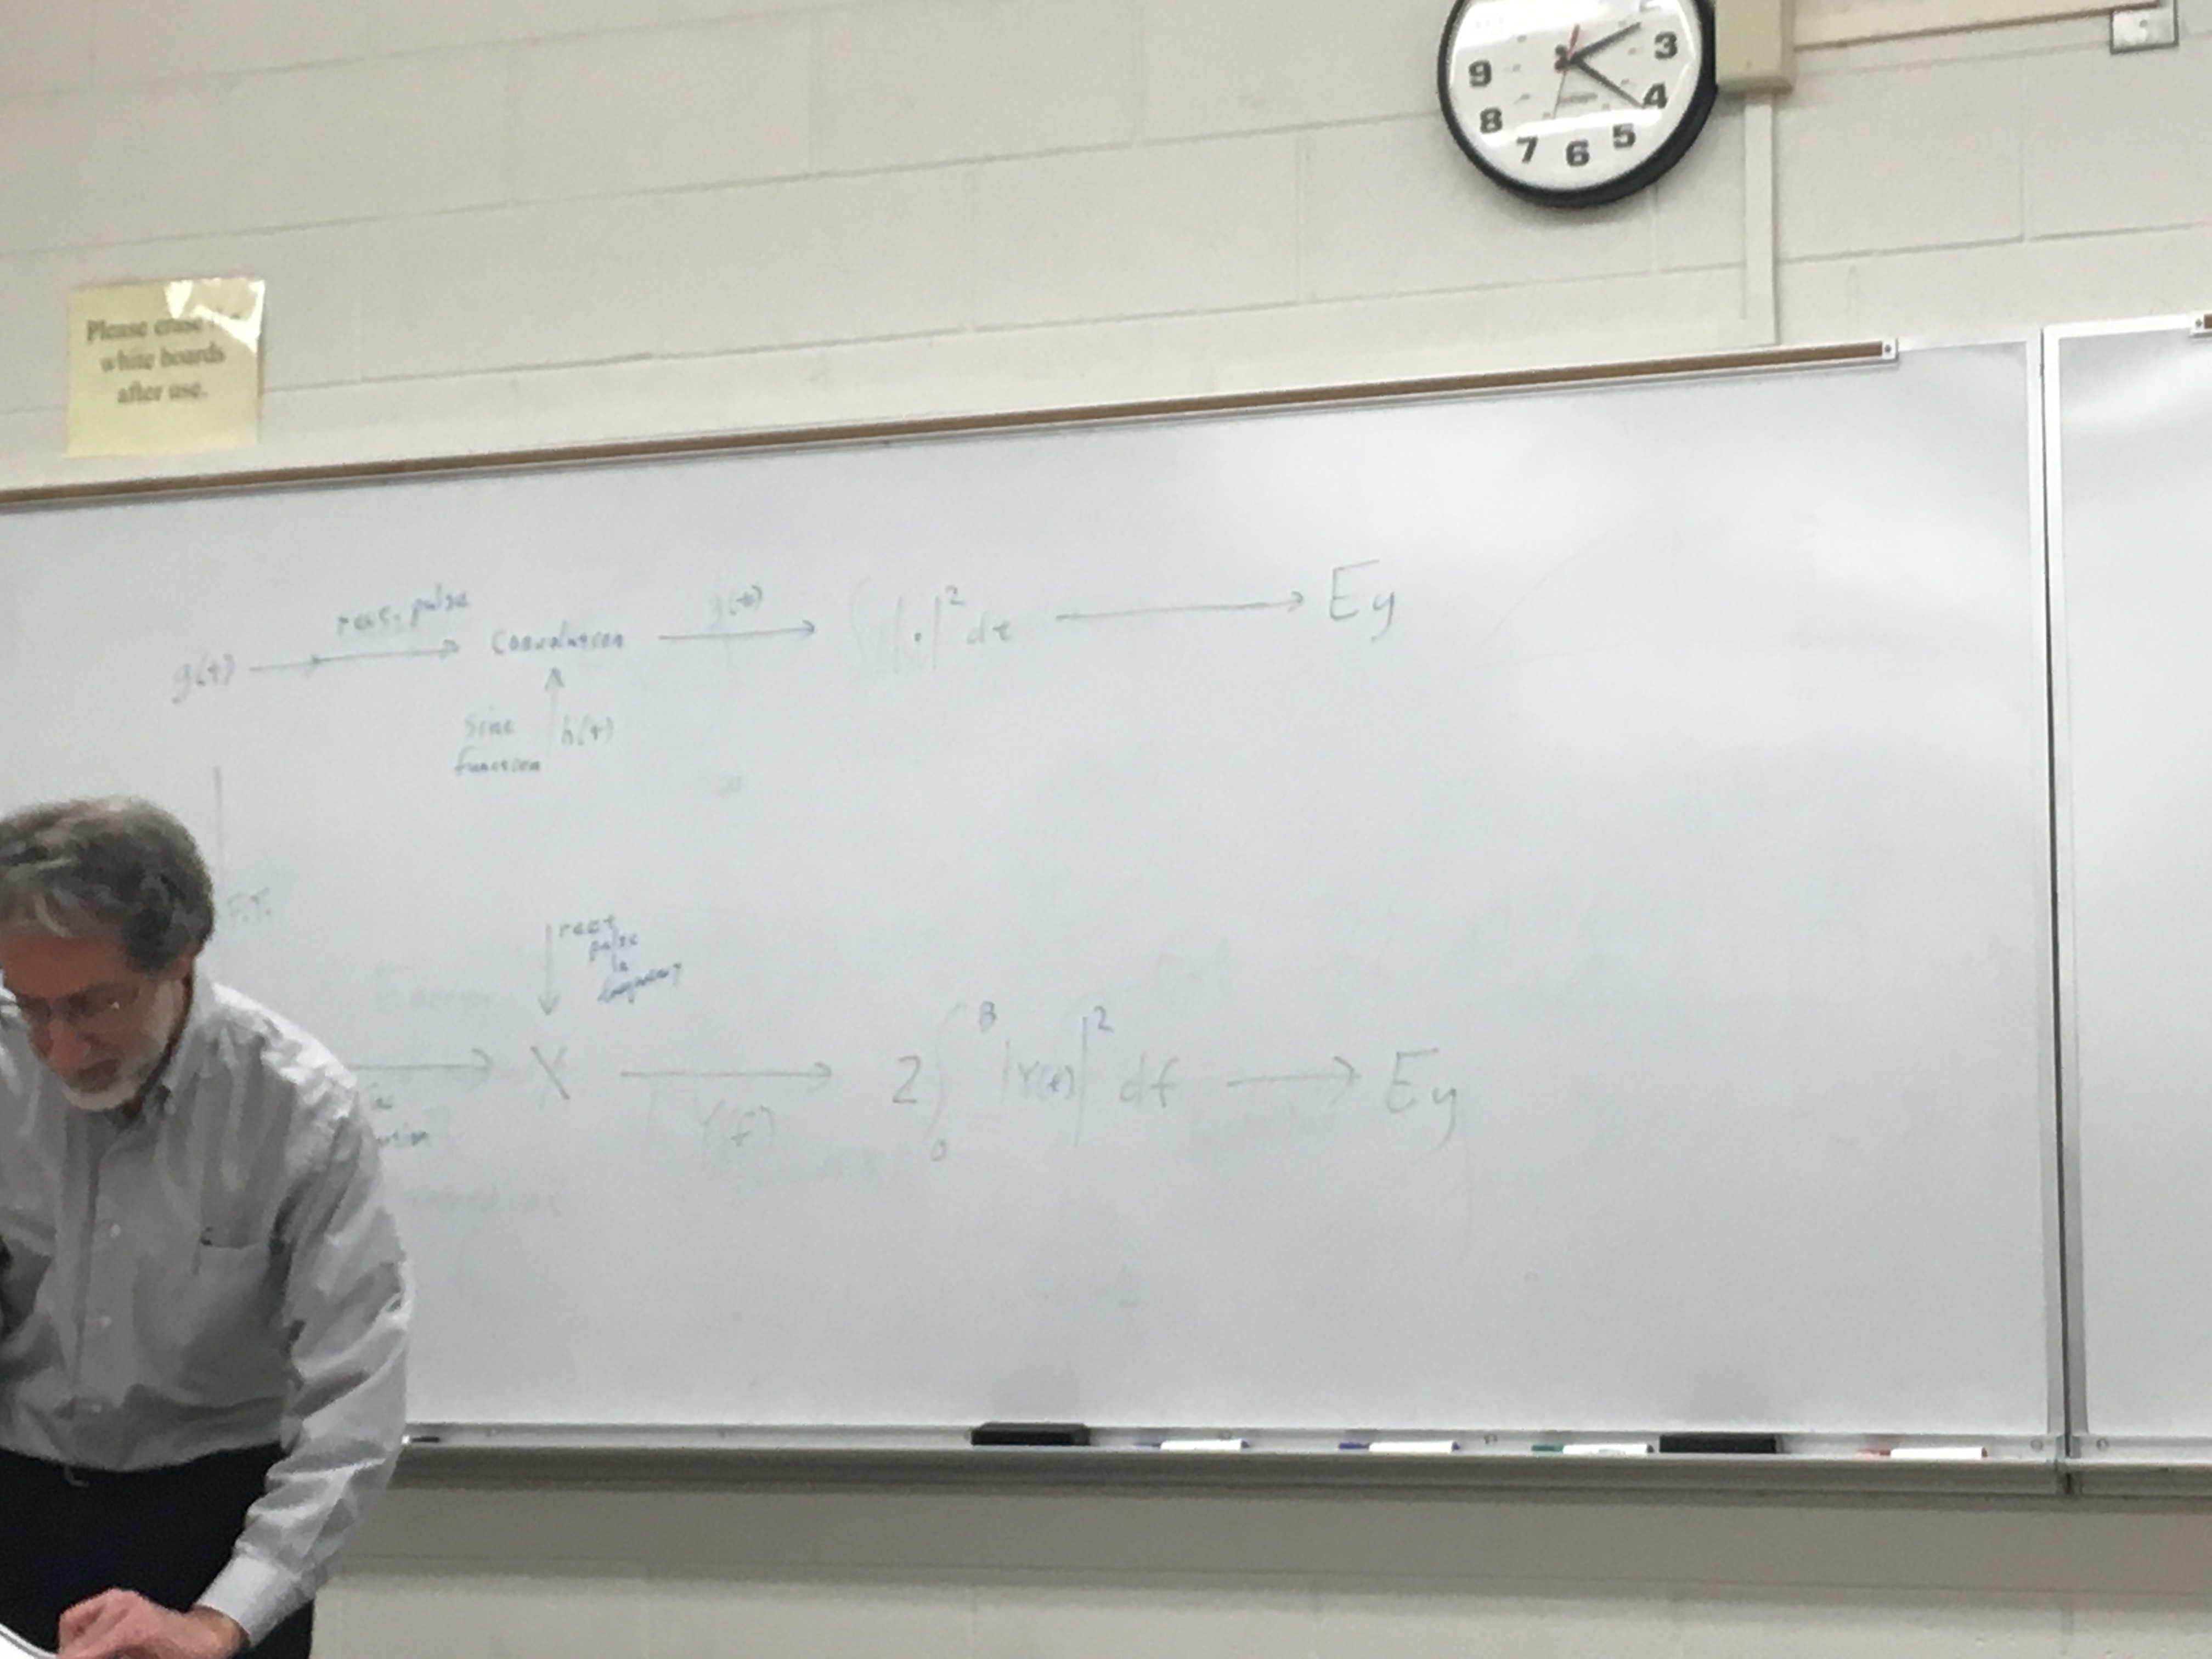 3
9
4
8
5
7
6
Please erase
white boards
after use.
rect. pulse
g(t)
Convolution
y(t)
∫|·|² dt
Ey
Sinc
function
h(t)
F.T.
rect
pulse
in
frequency
X
Y(f)
2∫₀ᴮ |Y(f)|² df
Ey